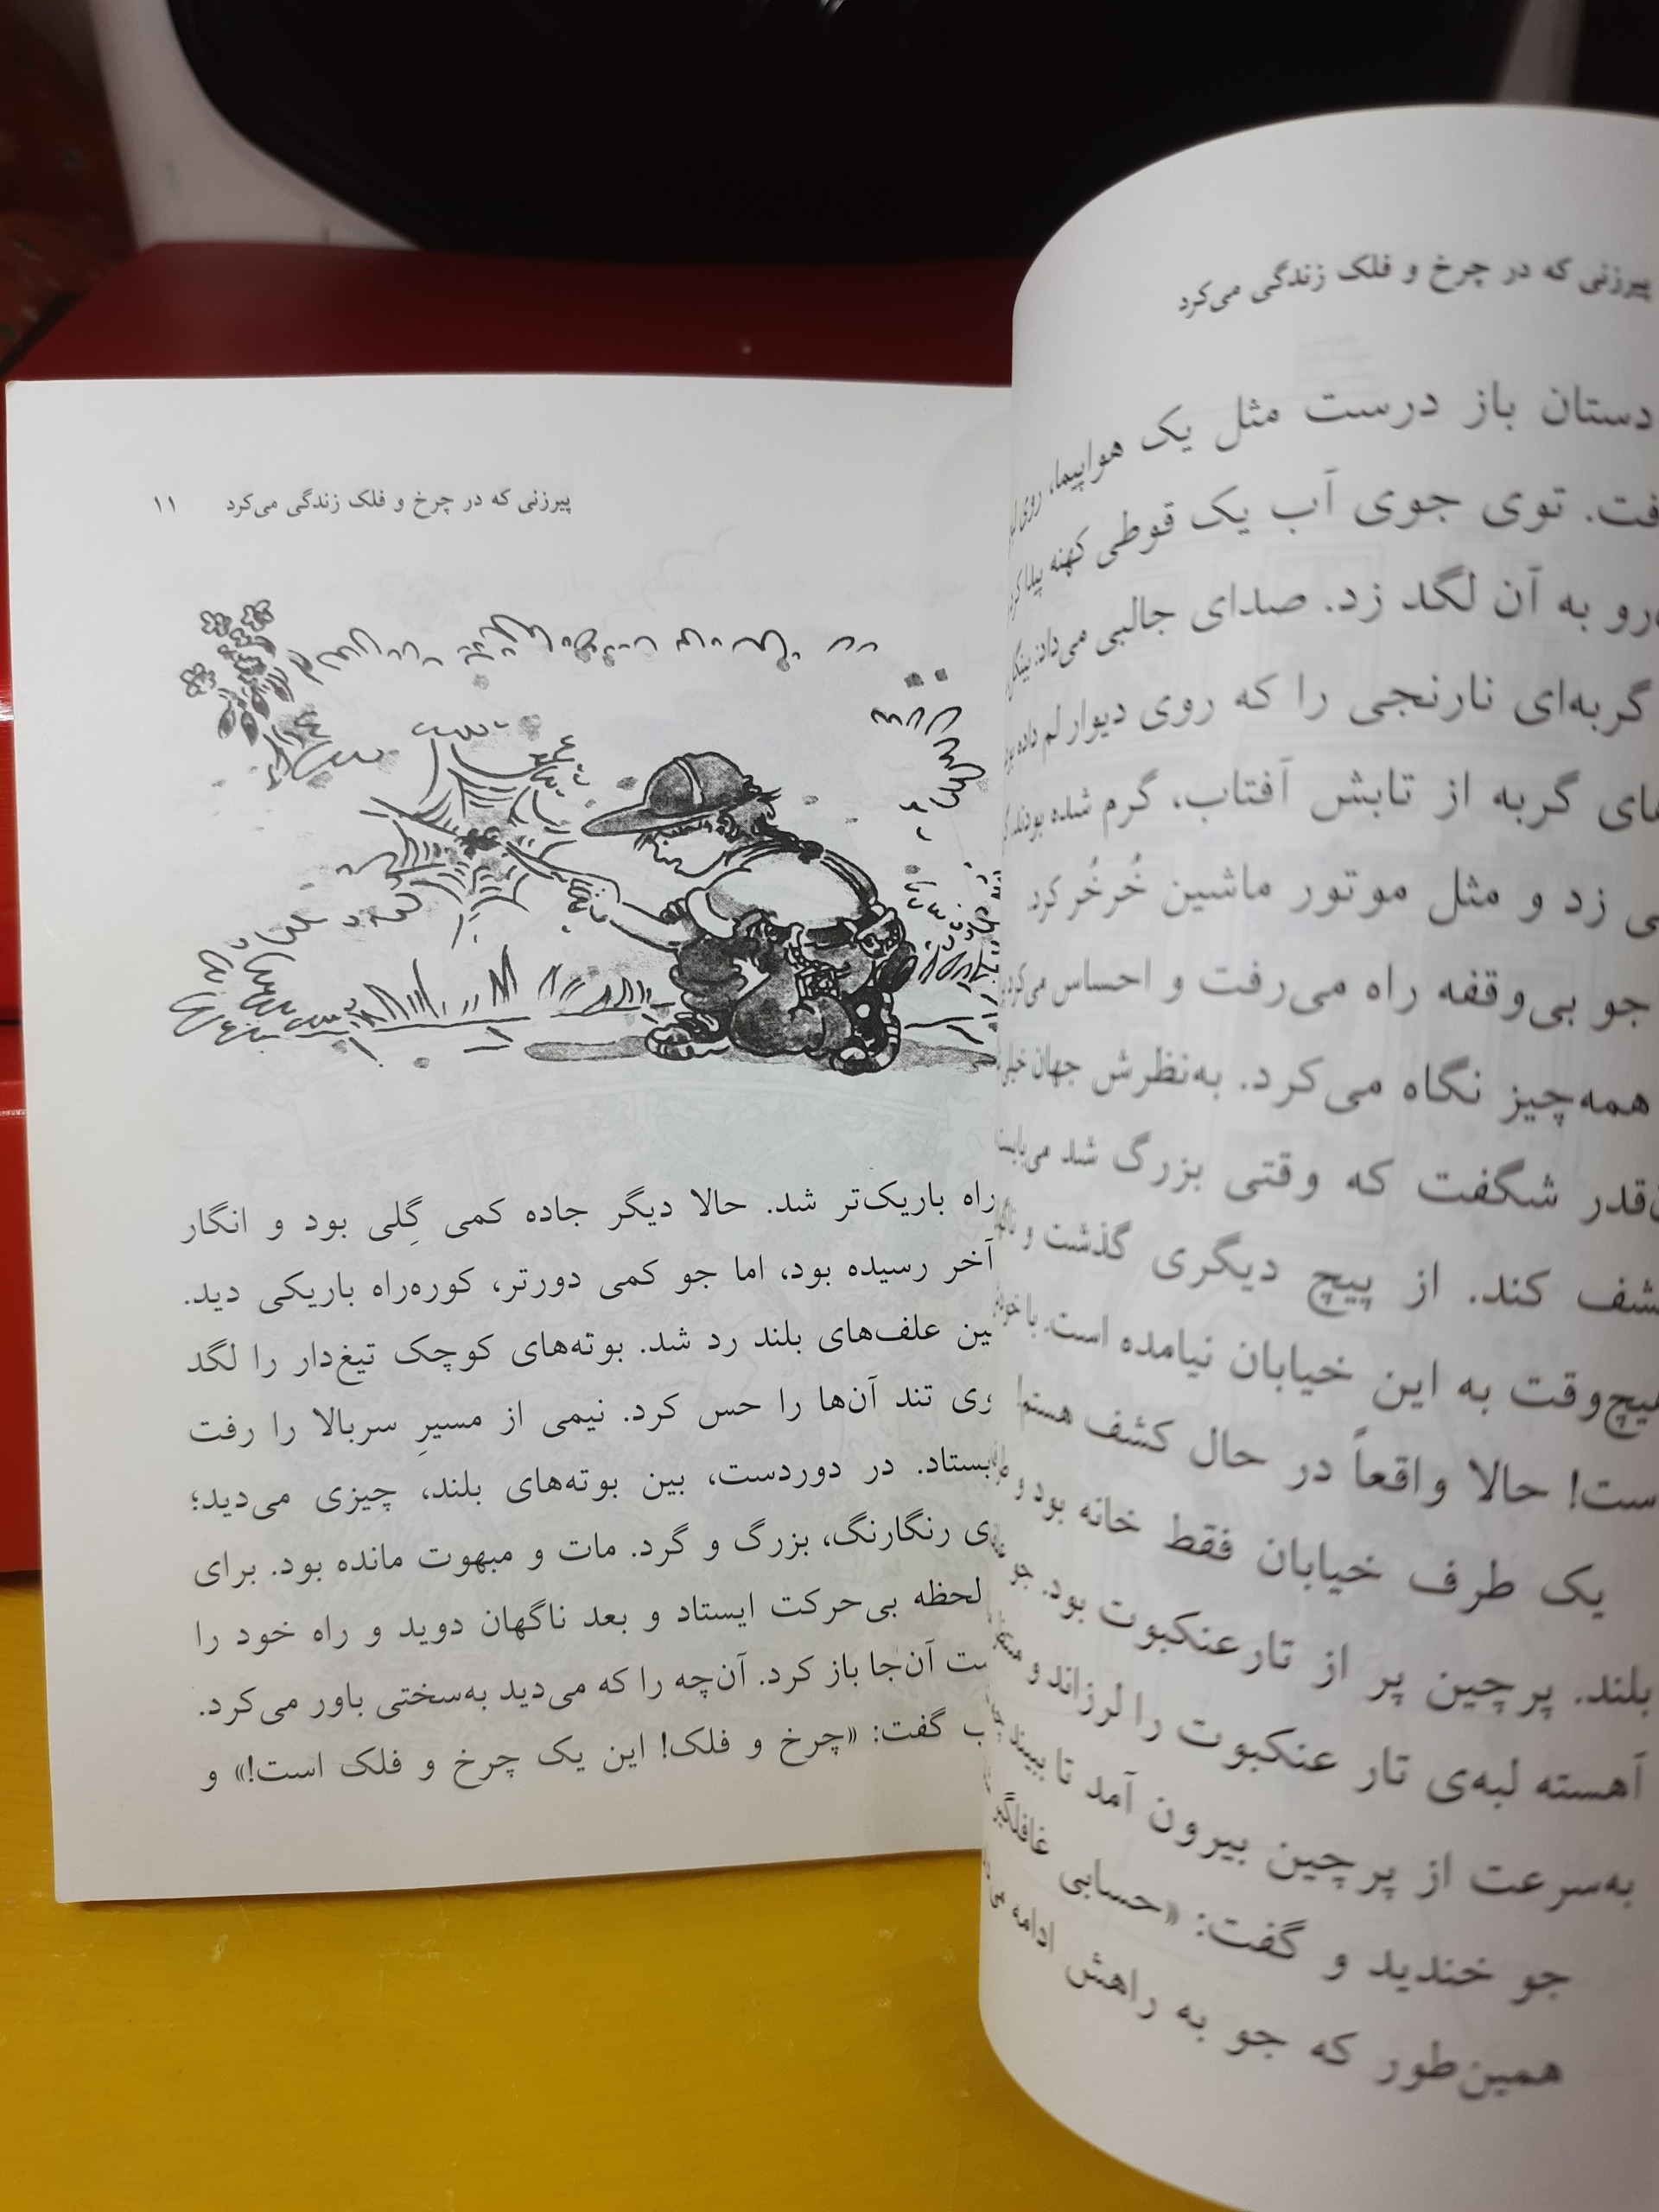 پیرزنی که در چرخ و فلک زندگی می‌کرد
دستان باز درست مثل یک هواپیما، روی
توی جوی آب یک قوطی کهنه پیدا کرد
به آن لگد زد. صدای جالبی می‌داد:
گربه‌ای نارنجی را که روی دیوار لم داده
گربه از تابش آفتاب، گرم شده بودند.
زد و مثل موتور ماشین خُرخُر کرد.
جو بی‌وقفه راه می‌رفت و احساس می‌کرد
همه‌چیز نگاه می‌کرد. به‌نظرش جهان خیلی
شگفت که وقتی بزرگ شد می‌بایست
کند. از پیچ دیگری گذشت و
هیچ‌وقت به این خیابان نیامده است. با
حالا واقعاً در حال کشف هستم!
یک طرف خیابان فقط خانه بود و
بلند. پرچین پر از تارعنکبوت بود. جو
آهسته لبه‌ی تار عنکبوت را لرزاند و
به‌سرعت از پرچین بیرون آمد تا ببیند
جو خندید و گفت: «حسابی غافلگیر
همین‌طور که جو به راهش ادامه
پیرزنی که در چرخ و فلک زندگی می‌کرد ۱۱
راه باریک‌تر شد. حالا دیگر جاده کمی گِلی بود و انگار
آخر رسیده بود، اما جو کمی دورتر، کوره‌راه باریکی دید.
علف‌های بلند رد شد. بوته‌های کوچک تیغ‌دار را لگد
تند آن‌ها را حس کرد. نیمی از مسیرِ سربالا را رفت
در دوردست، بین بوته‌های بلند، چیزی می‌دید؛
رنگارنگ، بزرگ و گرد. مات و مبهوت مانده بود. برای
لحظه بی‌حرکت ایستاد و بعد ناگهان دوید و راه خود را
آن‌جا باز کرد. آن‌چه را که می‌دید به‌سختی باور می‌کرد.
گفت: «چرخ و فلک! این یک چرخ و فلک است!» و